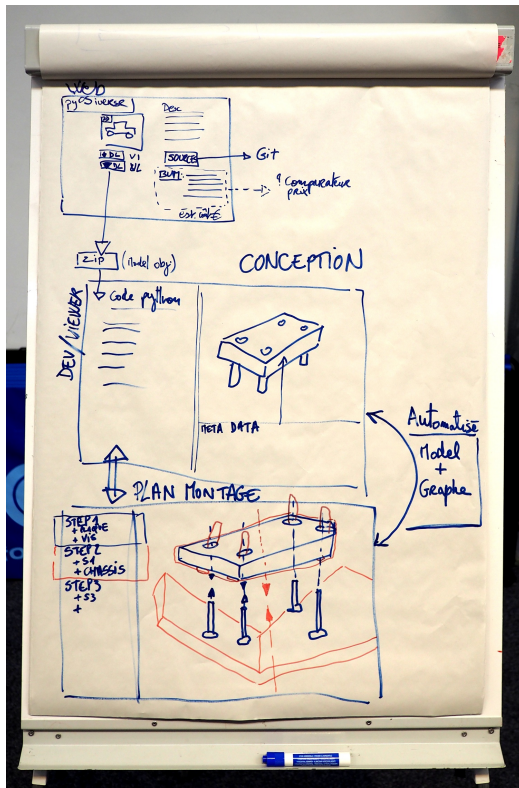 Web
pyOSiverse
2D
Desc
DL V1
DL
SOURCES
Git
BUM
? Comparateur
prix
Est. coté
ZIP
(Model obj)
CONCEPTION
DEV/VIEWER
Code python
META DATA
Automatisé
Model
+
Graphe
PLAN MONTAGE
STEP 1
+ VIS
STEP 2
+ S1
+ CHASSIS
STEP 3
+ S3
+